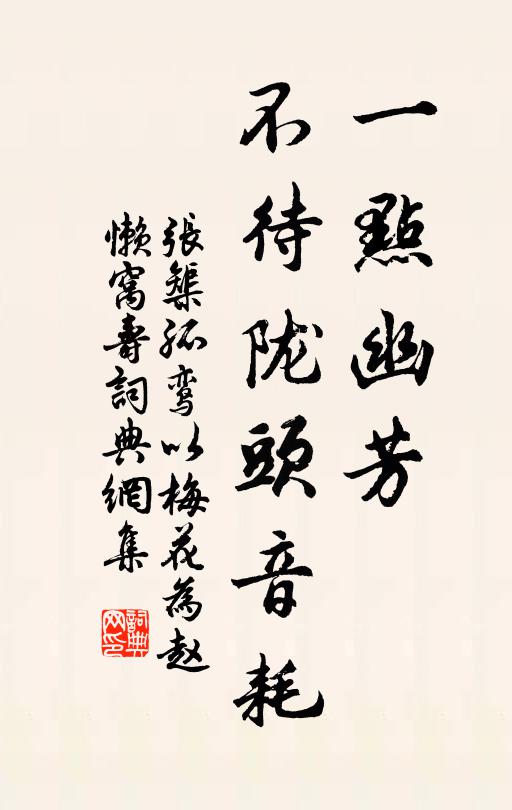 一點幽芳
不待陇頭音耗
張榘孤鸾以梅花為赵
懒窝壽詞典網集
詞典網印